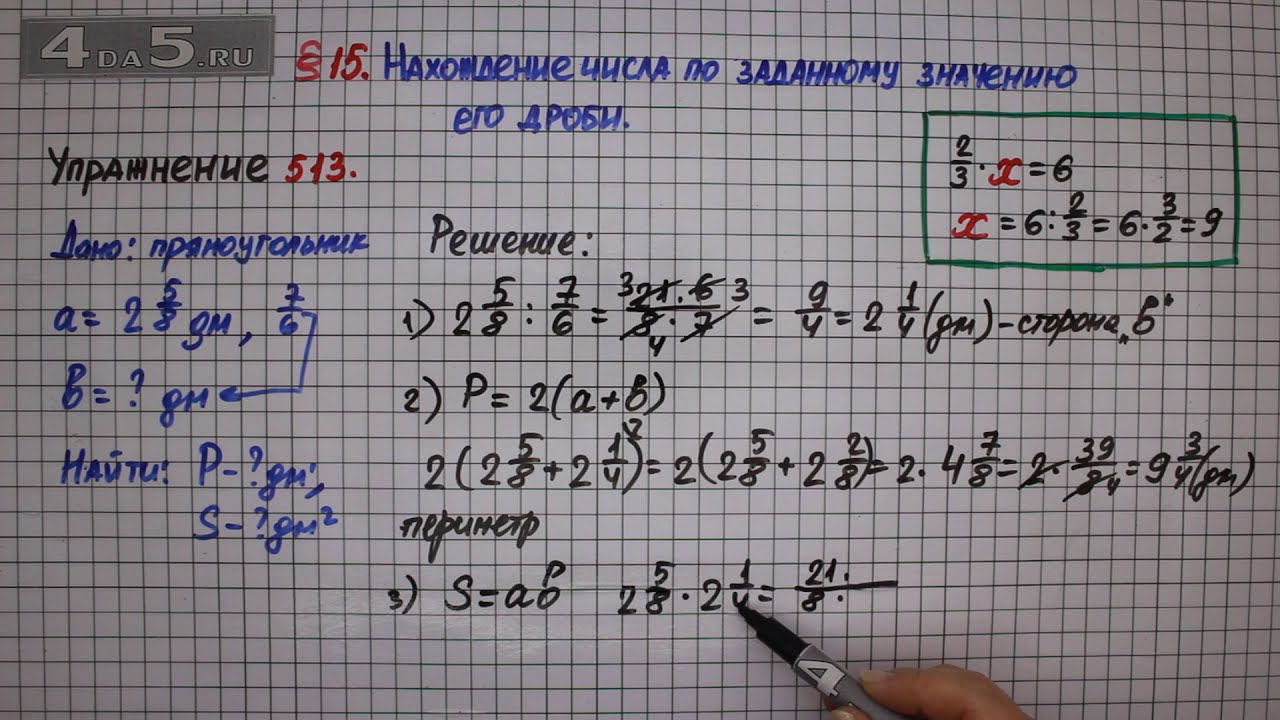 4DA5.RU
§ 15. Нахождение числа по заданному значению
его дроби.
Упражнение 513.
2/3 · x = 6
x = 6 : 2/3 = 6 · 3/2 = 9
Дано: прямоугольник
a = 2 5/8 дм, 7/6
в = ? дм
Найти: P - ? дм;
S - ? дм²
Решение:
1) 2 5/8 : 7/6 = 3 21 · 6 3 / 8 4 · 7 = 9/4 = 2 1/4 (дм) - сторона „в"
2) P = 2(a + в)
2(2 5/8 + 2 1/4 ²) = 2(2 5/8 + 2 2/8) = 2 · 4 7/8 = 2 · 39/8 4 = 9 3/4 (дм)
периметр
3) S = aв 2 5/8 · 2 1/4 = 21 · / 8 ·
4